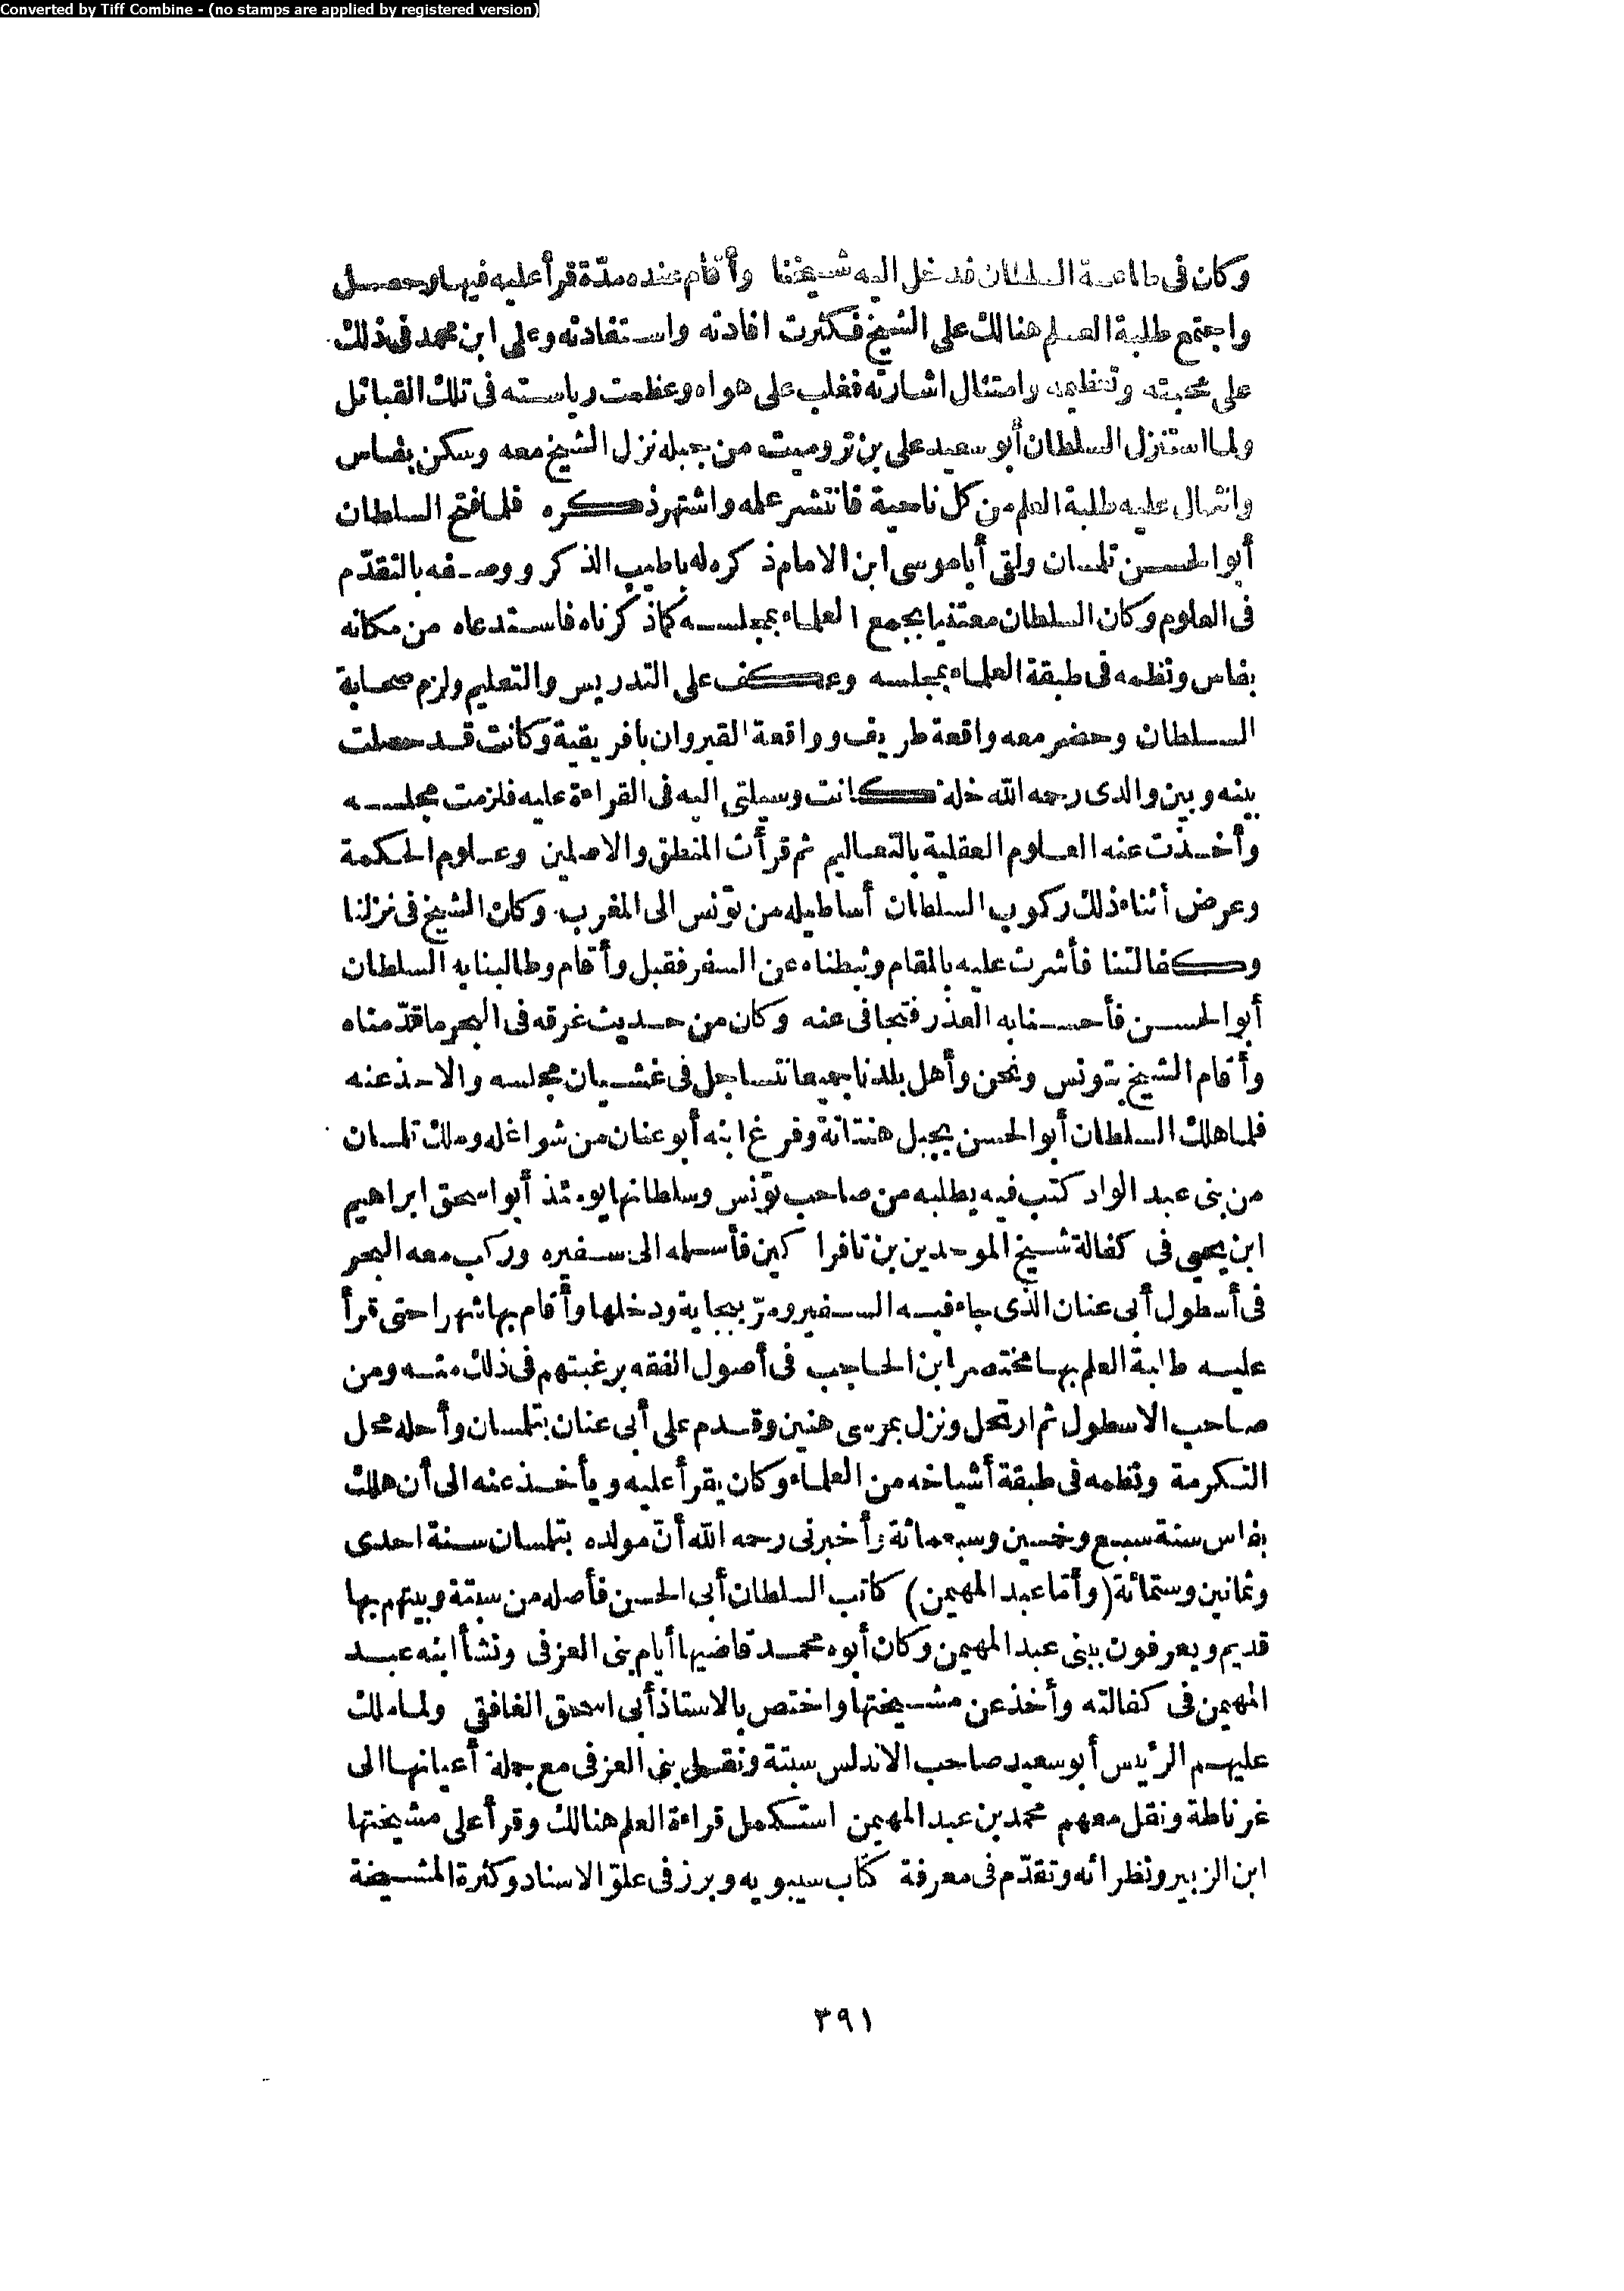 Converted by Tiff Combine - (no stamps are applied by registered version)
وكان فى طاعة السلطان فدخل اليه شيخنا وأقام عنده مدّة قرأ عليه فيها وحصل
واجتمع طلبة العلم هنالك على الشيخ فكثرت افادته واستفادته وعلى ابن محمد فى ذلك
على محبته وتعظيمه وامتثال اشارته فغلب على هواه وعظمت رياسته فى تلك القبائل
ولما استنزل السلطان أبو سعيد على بن تروميت من جبله نزل الشيخ معه وسكن بفاس
وانثال عليه طلبة العلم من كل ناحية فانتشر علمه واشتهر ذكره فلما فتح السلطان
أبو الحسن تلمسان ولقى أبا موسى ابن الامام ذكره له باطيب الذكر ووصفه بالتقدّم
فى العلوم وكان السلطان معتنيا بجمع العلماء بمجلسه كما ذكرناه فاستدعاه من مكانه
بفاس ونظمه فى طبقة العلماء بمجلسه وعكف على التدريس والتعليم ولزم صحابة
السلطان وحضر معه واقعة طريف وواقعة القيروان بافريقية وكانت قد حصلت
بينه وبين والدى رحمه الله خلة كانت وسيلتى اليه فى القراءة عليه فلزمت مجلسه
وأخذت عنه العلوم العقلية بالتعاليم ثم قرأت المنطق والاصلين وعلوم الحكمة
وعرض أثناء ذلك ركوب السلطان أساطيله من تونس الى المغرب وكان الشيخ فى نزلنا
وكفالتنا فأشرت عليه بالمقام وثبطناه عن السفر فقبل وأقام وطالبنا به السلطان
أبو الحسن فأحسنا به العذر فتجافى عنه وكان من حديث غرقه فى البحر ما قدّمناه
وأقام الشيخ بتونس ونحن وأهل بلدنا جميعا نتساجل فى غشيان مجلسه والاخذ عنه
فلما هلك السلطان أبو الحسن بجبل هنتاتة وفرغ ابنه أبو عنان من شواغله وملك تلمسان
من بنى عبد الواد كتب فيه يطلبه من صاحب تونس وسلطانها يومئذ أبو اسحق ابراهيم
ابن يحيى فى كفالة شيخ الموحدين بن تافرا كين فأسلمه الى سفيره وركب معه البحر
فى أسطول أبى عنان الذى جاء فيه السفير ومرّ ببجاية ودخلها وأقام بها شهرا حتى قرأ
عليه طلبة العلم بها مختصر ابن الحاجب فى أصول الفقه برغبتهم فى ذلك منه ومن
صاحب الاسطول ثم ارتحل ونزل بمرسى هنين وقدم على أبى عنان بتلمسان وأحله محل
التكرمة ونظمه فى طبقة أشياخه من العلماء وكان يقرأ عليه ويأخذ عنه الى أن هلك
بفاس سنة سبع وخمسين وسبعمائة وأخبرنى رحمه الله أنّ مولده بتلمسان سنة احدى
وثمانين وستمائة (وأمّا عبد المهيمن) كاتب السلطان أبى الحسن فأصله من سبتة وبيتهم بها
قديم ويعرفون ببنى عبد المهيمن وكان أبوه محمد قاضيها أيام بنى العزفى ونشأ ابنه عبد
المهيمن فى كفالته وأخذ عن مشيختها واختص بالاستاذ أبى اسحق الغافقى ولما ملك
عليهم الرئيس أبو سعيد صاحب الاندلس سبتة ونقل بنى العزفى مع جملة أعيانها الى
غرناطة ونقل معهم محمد بن عبد المهيمن استكمل قراءة العلم هنالك وقرأ على مشيختها
ابن الزبير ونظرائه وتقدّم فى معرفة كتاب سيبويه وبرز فى علوّ الاسناد وكثرة المشيخة
٣٩١